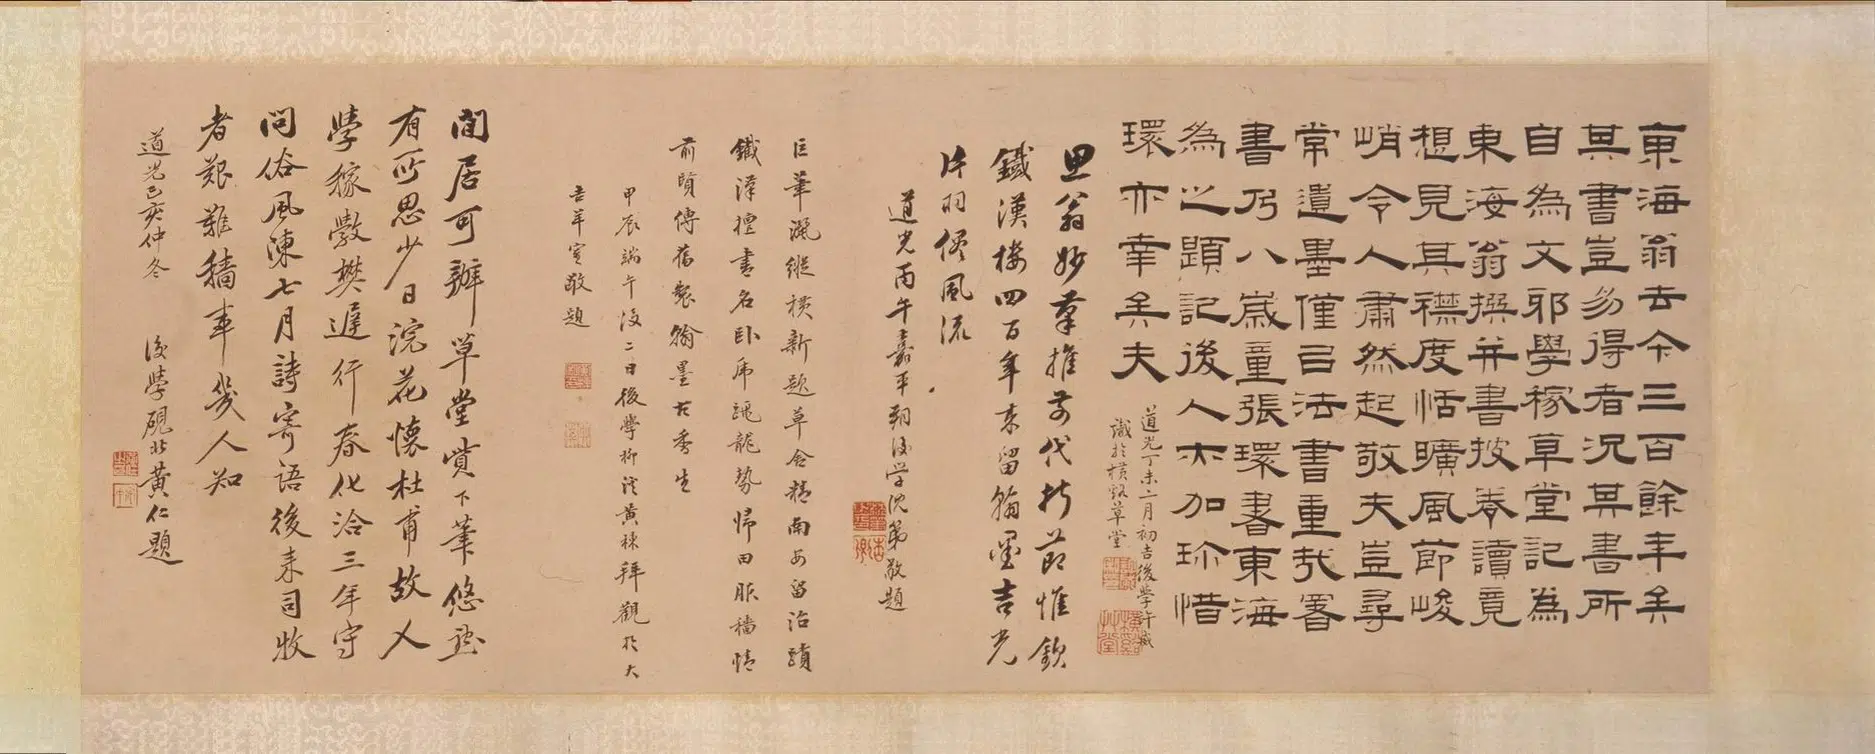 東海翁去今三百餘年矣
其書豈易得者況其書所
自為文邪學稼草堂記為
東海翁撰并書披卷讀竟
想見其襟度恬曠風節峻
峭令人肅然起敬夫豈尋
常遺墨僅㠯法書重哉署
書乃八歲童張環書東海
為之題記後人亦加珍惜
環亦幸矣夫
道光丁未二月初吉後學許威
識於橫雲草堂
思翁妙筆推前代行節惟欽
鐵漢樓四百年來留翰墨吉光
片羽儘風流
道光丙午嘉平朔後學沈 敬題
巨筆濺縱橫新題草舍精南安留治蹟
鐵漢擅書名臥虎飛龍勢歸田脹穡情
前賢傳舊製翰墨古香生
甲辰端午後二日後學 黃棟拜觀於大
吉羊室敬題
閒居可辦草堂貲下筆悠然
有所思少日浣花懷杜甫故人
學稼斅樊遲行春化洽三年守
問俗風陳七月詩寄語後來司牧
者艱難穡事幾人知
道光己亥仲冬
後學硯北黃仁題